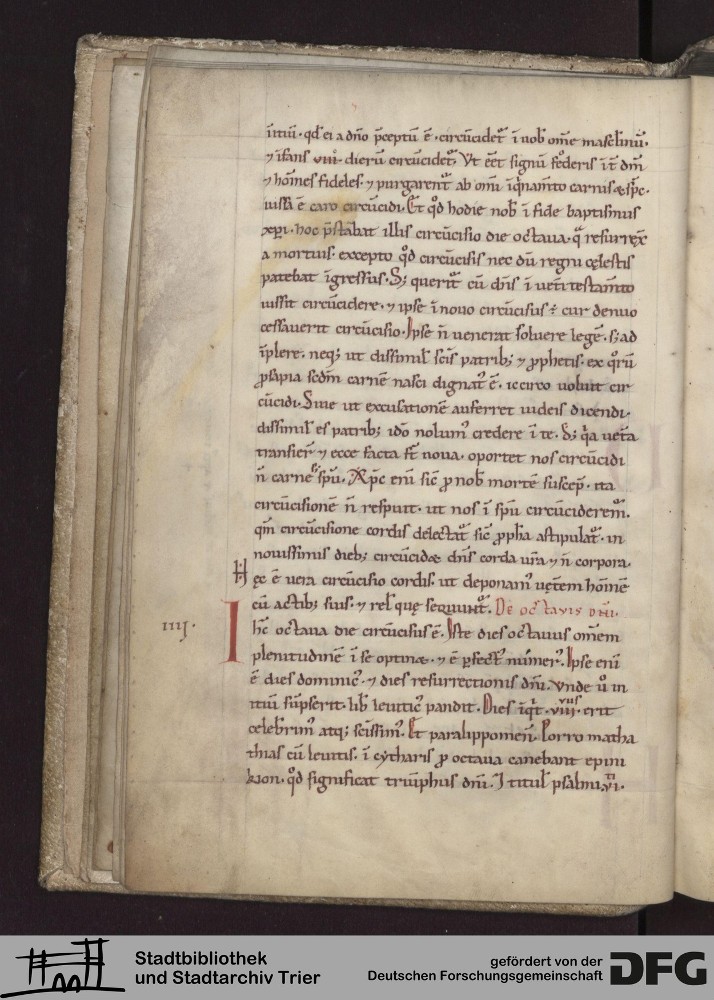 initiũ · qd̃ ei a dño p̃ceptũ ẽ · circũcidet̃ ĩ uob om̃e masclĩnũ ·
⁊ ĩfans viii · dierũ circũcidet̃ · Vt eẽt signũ fęderis ĩt̃ dm̃
⁊ hom̃es fideles · ⁊ purgarent̃ ab om̃i ĩq̃nam̃to carnis & sp̃c ·
iussã ẽ caro circũcidi · Et qd̃ hodie nob̃ ĩ fide baptismus
xp̃i · hoc p̃stabat illis circũcisio die octaua · q̃ resurręx
a mortuis · excepto qd̃ circũcisis nec dũ regni cęlestis
patebat ĩgressus · S; querit̃ cũ dñs ĩ uet̃i testam̃to
iussit circũcidere · ⁊ ipse ĩ nouo circũcisus ÷ cur denuo
cessauerit circũcisio · Ipse ñ uenerat soluere legẽ · s; ad
ĩplere · neq; ut dissimil̃ sc̃is patrib; ⁊ p̃phetis · ex q̃rũ
p̃sapia scdm̃ carnẽ nasci dignat̃ ẽ · iccirco uoluit cir
cũcidi · Siue ut excusationẽ auferret iudeis dicendi ·
dissimil̃ es patrib; idõ nolum̃ credere ĩ te · q̃a uet̃a
transier̃ ⁊ ecce facta st̃ noua · oportet nos circũcidi
ñ carne s; sp̃u · Xp̃c eni sic̃ p nob̃ mortẽ suscep̃ · ita
circũcisionẽ ñ respuit · ut nos ĩ sp̃u circũciderem̃ ·
qm̃ circũcisione cordis delectat̃ sic̃ pph̃a astipulat̃ · in
nouissimis dieb; circũcidæ dñs corda ur̃a ⁊ ñ corpora ·
Hęc ẽ uera circũcisio cordis · ut deponam̃ uętem hom̃inẽ
cũ actib; suis · ⁊ rel̃ quę seqũunt̃ · De octauis dñi ·
IIII ·
Ihc octaua die circũcisus ẽ · Iste dies octauus om̃em
plenitudinẽ ĩ se optinæ · ⁊ ẽ pfect̃ nũmer̃ · Ipse eni
ẽ dies dominic̃ · ⁊ dies resurrectionis dñi · vnde ũ in
itiũ sũpserit · lib̃ leuitic̃ pandit · Dies ĩq̃t · viii · erit
celeb̃rim̃ atq; sc̃issim̃ · Et paralippomeñ · Porro matha
thias cũ leuitis · ĩ cytharis p octaua canebant epini
kion · qd̃ significat triũphus dñi · Ĩ titul̃ psalmi vi ·
Stadtbibliothek
und Stadtarchiv Trier
gefördert von der
Deutschen Forschungsgemeinschaft DFG